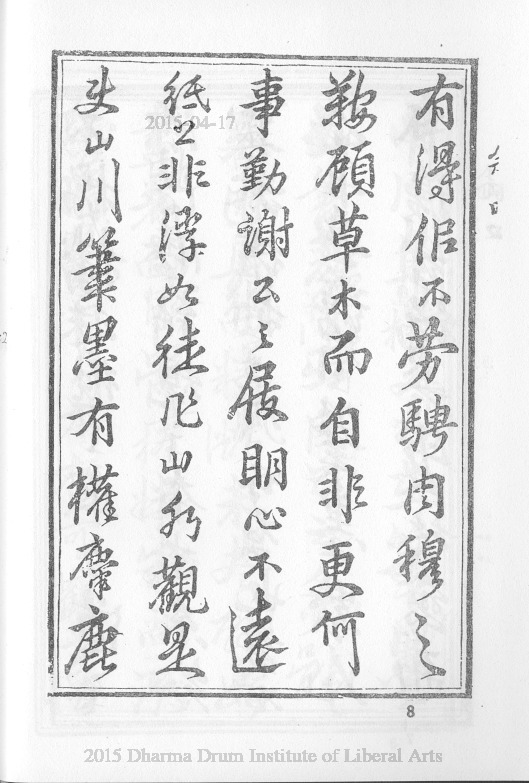 有得但不勞騁周穆之
鞍顧草木而自非更何
事勤謝公之屐明心不遠
紙上非深如徒作山水觀是
失山川筆墨有權麋鹿
8
2015-04-17
2015 Dharma Drum Institute of Liberal Arts